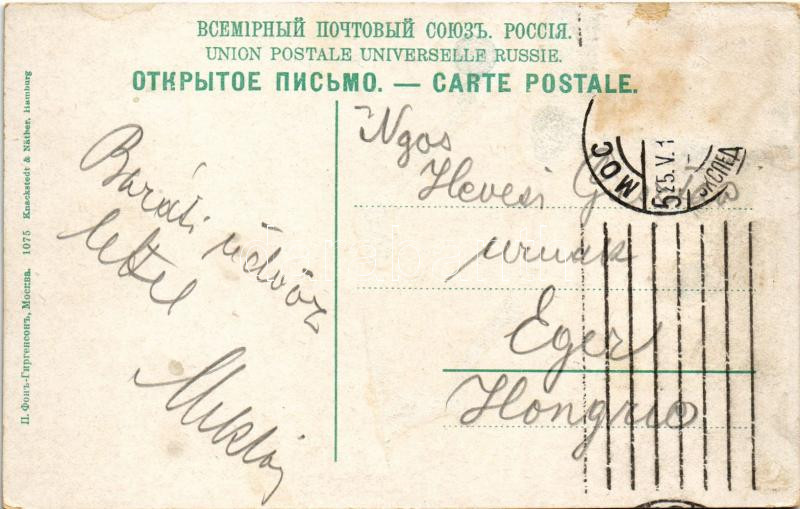 ВСЕМІРНЫЙ ПОЧТОВЫЙ СОЮЗЪ. РОССІЯ.
UNION POSTALE UNIVERSELLE RUSSIE.
ОТКРЫТОЕ ПИСЬМО. — CARTE POSTALE.
П. Фонъ-Гиргенсонъ, Москва. 1075 Knackstedt & Näther, Hamburg
Baráti üdvöz
lettel
Miklós
Ngos
Hevesi
urnak
Eger
Hongrie
МОС
5 25.V.1
ЭКСПЕД